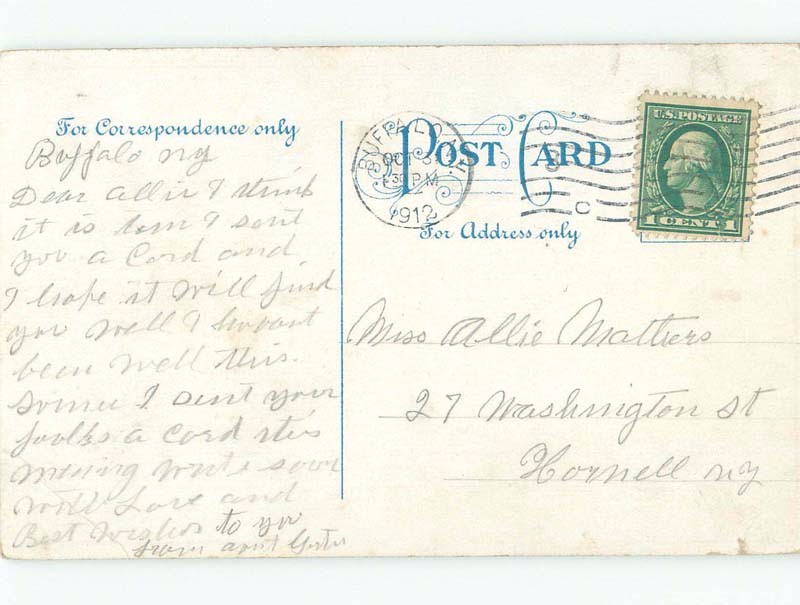 For Correspondence only
Buffalo ny
Dear Allie I think
it is time I sent
you a Cord and
I hope it will find
you well I havant
been well this.
I sent your
foolks a cord this
morning write soon
With Love and
Best Wishes to you
from aunt
POST CARD
For Address only
BUFFALO, N.Y.
OCT
30 PM
1912
C
U.S. POSTAGE
1 CENT 1
Miss Allie Mathers
27 Washington St
Hornell ny